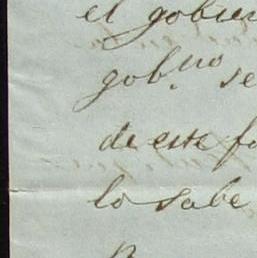 el gobier
gob.no se
de este fa
lo sabe